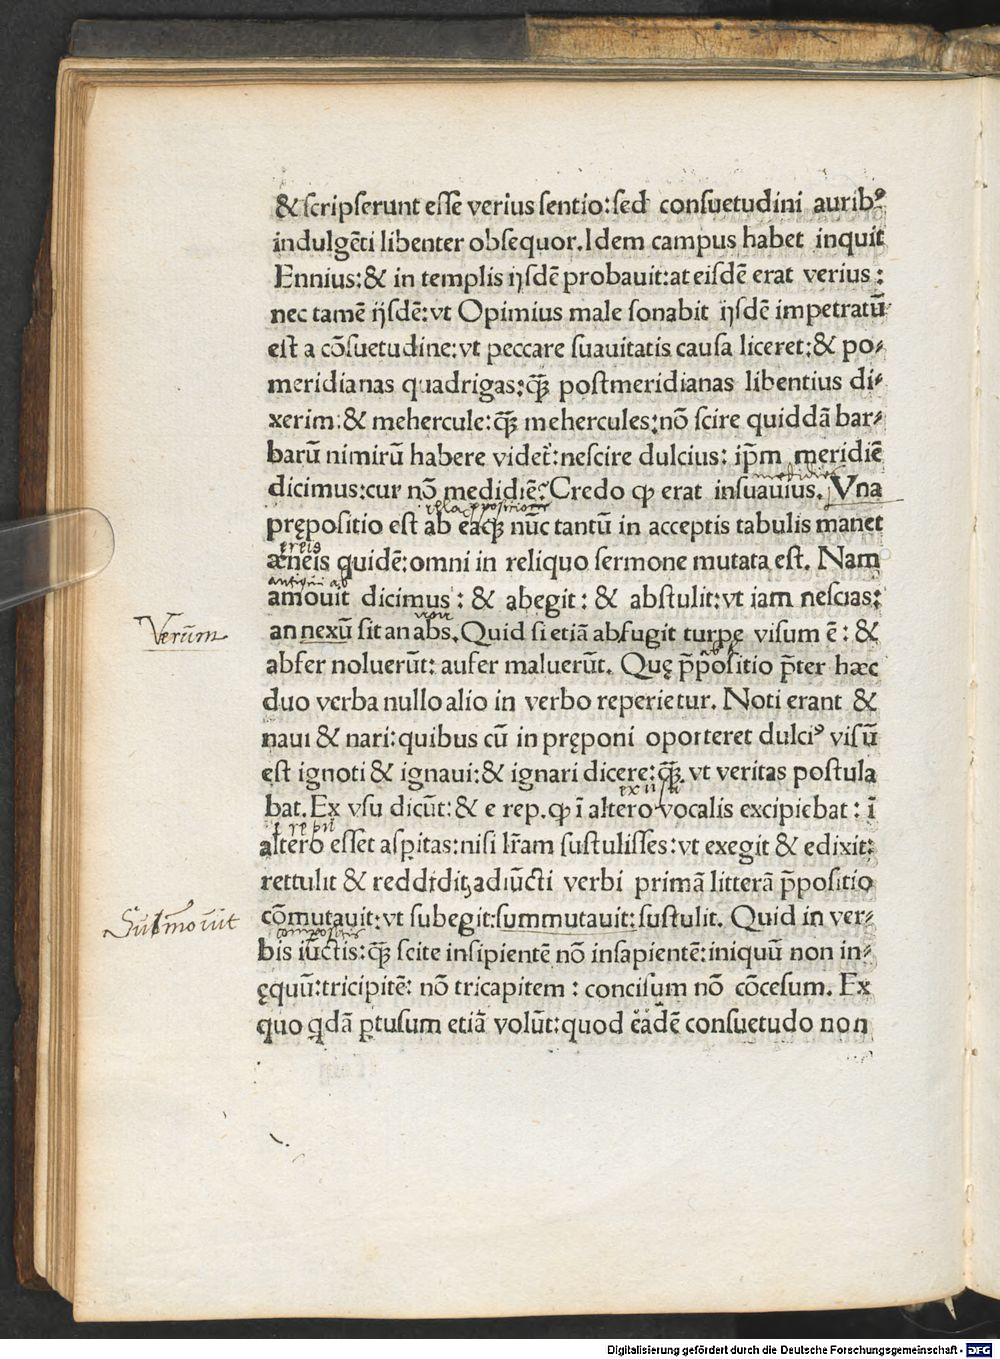 & scripserunt esse verius sentio: sed consuetudini aurib⁹
indulgēti libenter obsequor. Idem campus habet inquit
Ennius: & in templis ijsdē probauit: at eisdē erat verius:
nec tamē ijsdē: vt Opimius male sonabit ijsdē impetratū
est a cōsuetudine: vt peccare suauitatis causa liceret: & po⸗
meridianas quadrigas: q̄ꝫ postmeridianas libentius di⸗
xerim: & mehercule: q̄ꝫ mehercules: nō scire quiddā bar⸗
barū nimirū habere videt̄: nescire dulcius: ip̄m meridiē
medidies
dicimus: cur nō medidiē? Credo ꝙ erat insuauius. Vna
illa p̱positione
prępositio est ab eaqꝫ nūc tantū in acceptis tabulis manet
ereis
æneis quidē: omni in reliquo sermone mutata est. Nam
antiqui ab
amouit dicimus: & abegit: & abstulit: vt iam nescias:
Verūm
an nexū sit an abs. Quid si etiā abfugit turpe visum ē: &
abfer noluerūt: aufer maluerūt. Quę p̄positio p̄ter hæc
duo verba nullo alio in verbo reperietur. Noti erant &
naui & nari: quibus cū in pręponi oporteret dulci⁹ visū
est ignoti & ignaui: & ignari dicere: q̄ꝫ. vt veritas postula
bat. Ex vsu dicūt: & e rep. ꝙ ī altero vocalis excipiebat: ī
altero esset asp̱itas: nisi lr̄am sustulisses: vt exegit & edixit:
rettulit & reddidit, adiūcti verbi primā litterā p̄positio
Sum̄mouit
cōmutauit: vt subegit: summutauit: sustulit. Quid in ver⸗
compositis
bis iūctis: q̄ꝫ scite insipientē nō insapientē: iniquū non in⸗
ęquū: tricipitē: nō tricapitem: concisum nō cōcesum. Ex
quo qdā ꝑtusum etiā volūt: quod eādē consuetudo non
Digitalisierung gefördert durch die Deutsche Forschungsgemeinschaft - DFG